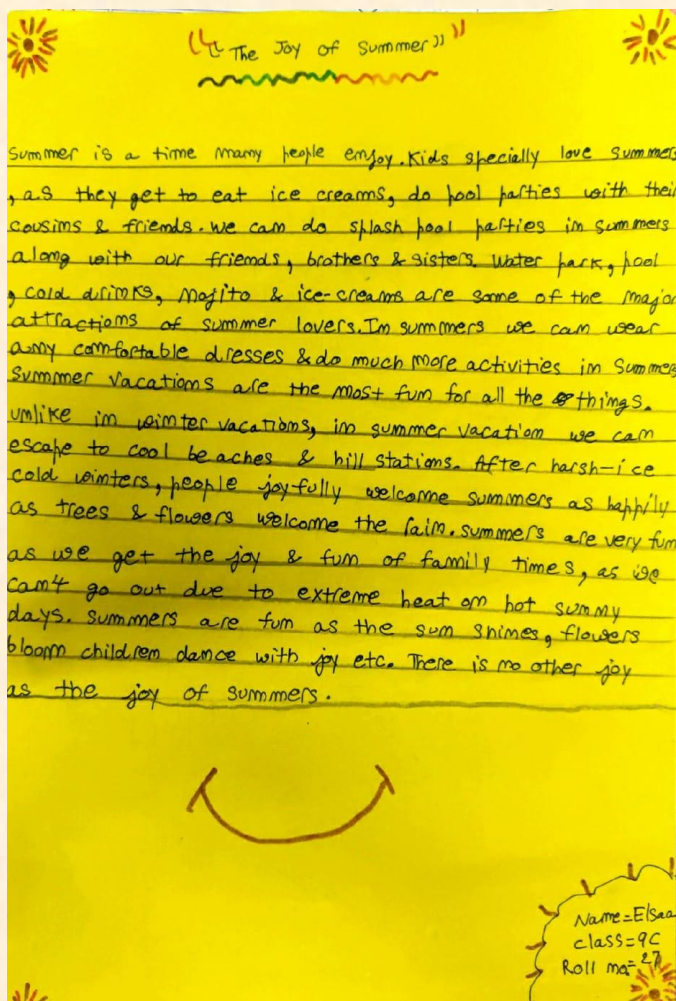 "The Joy of Summer"
Summer is a time many people enjoy. Kids specially love summers
, as they get to eat ice creams, do pool parties with their
cousins & friends. we can do splash pool parties in summers
along with our friends, brothers & sisters. Water park, pool
, cold drinks, Mojito & ice-creams are some of the major
attractions of summer lovers. In summers we can wear
any comfortable dresses & do much more activities in summers
summer vacations are the most fun for all the things.
unlike in winter vacations, in summer vacation we can
escape to cool beaches & hill stations. After harsh-ice
cold winters, people joyfully welcome summers as happily
as trees & flowers welcome the rain. summers are very fun
as we get the joy & fun of family times, as we
can't go out due to extreme heat on hot sunny
days. summers are fun as the sun shines, flowers
bloom children dance with joy etc. There is no other joy
as the joy of summers.
Name=Elsaa
class=9C
Roll no=27